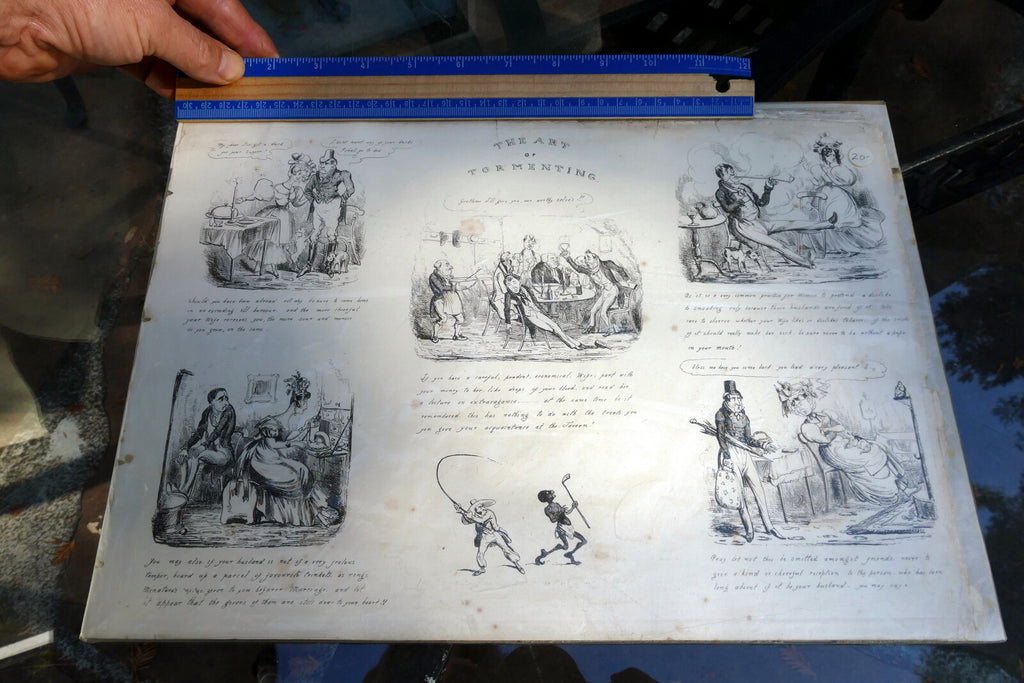 2 3 4 5 6 7 8 9 10 11 12
THE ART
OF
TORMENTING
20-
Gentlemen I'll give you, our worthy selves!!
My dear I've got a
for your Supper!
I don't want any of your
I shall go to bed
Should you have been abroad all day be sure to come home
in exceeding ill humour, and the more cheerful
your Wife receives you, the more sour and morose
do you grow, on the same
As it is a very common practice for Women to pretend a dislike
to smoaking only because their husbands are fond of it, take
care to observe whether your Wife likes or dislikes Tobacco, if the smoke
of it should really make her sick, be sure never to be without a pipe
in your mouth!
If you have a careful, prudent, economical Wife, part with
your money to her, like drops of your blood, and read her
a lecture on extravagance at the same time be it
remembered this has nothing to do with the treats you
you give your acquaintance at the Tavern!
Bless me how you come back, you had a very pleasant
You may also, if your husband is not of a very jealous
temper, hoard up a parcel of favourite trinkets as rings
Miniatures &c. given to you before Marriage, and let
it appear that the givers of them are still dear to your heart!!
Pray let not this be omitted amongst friends, never to
give a kind or cheerful reception to the person who has been
long absent if it be your husband, you may say